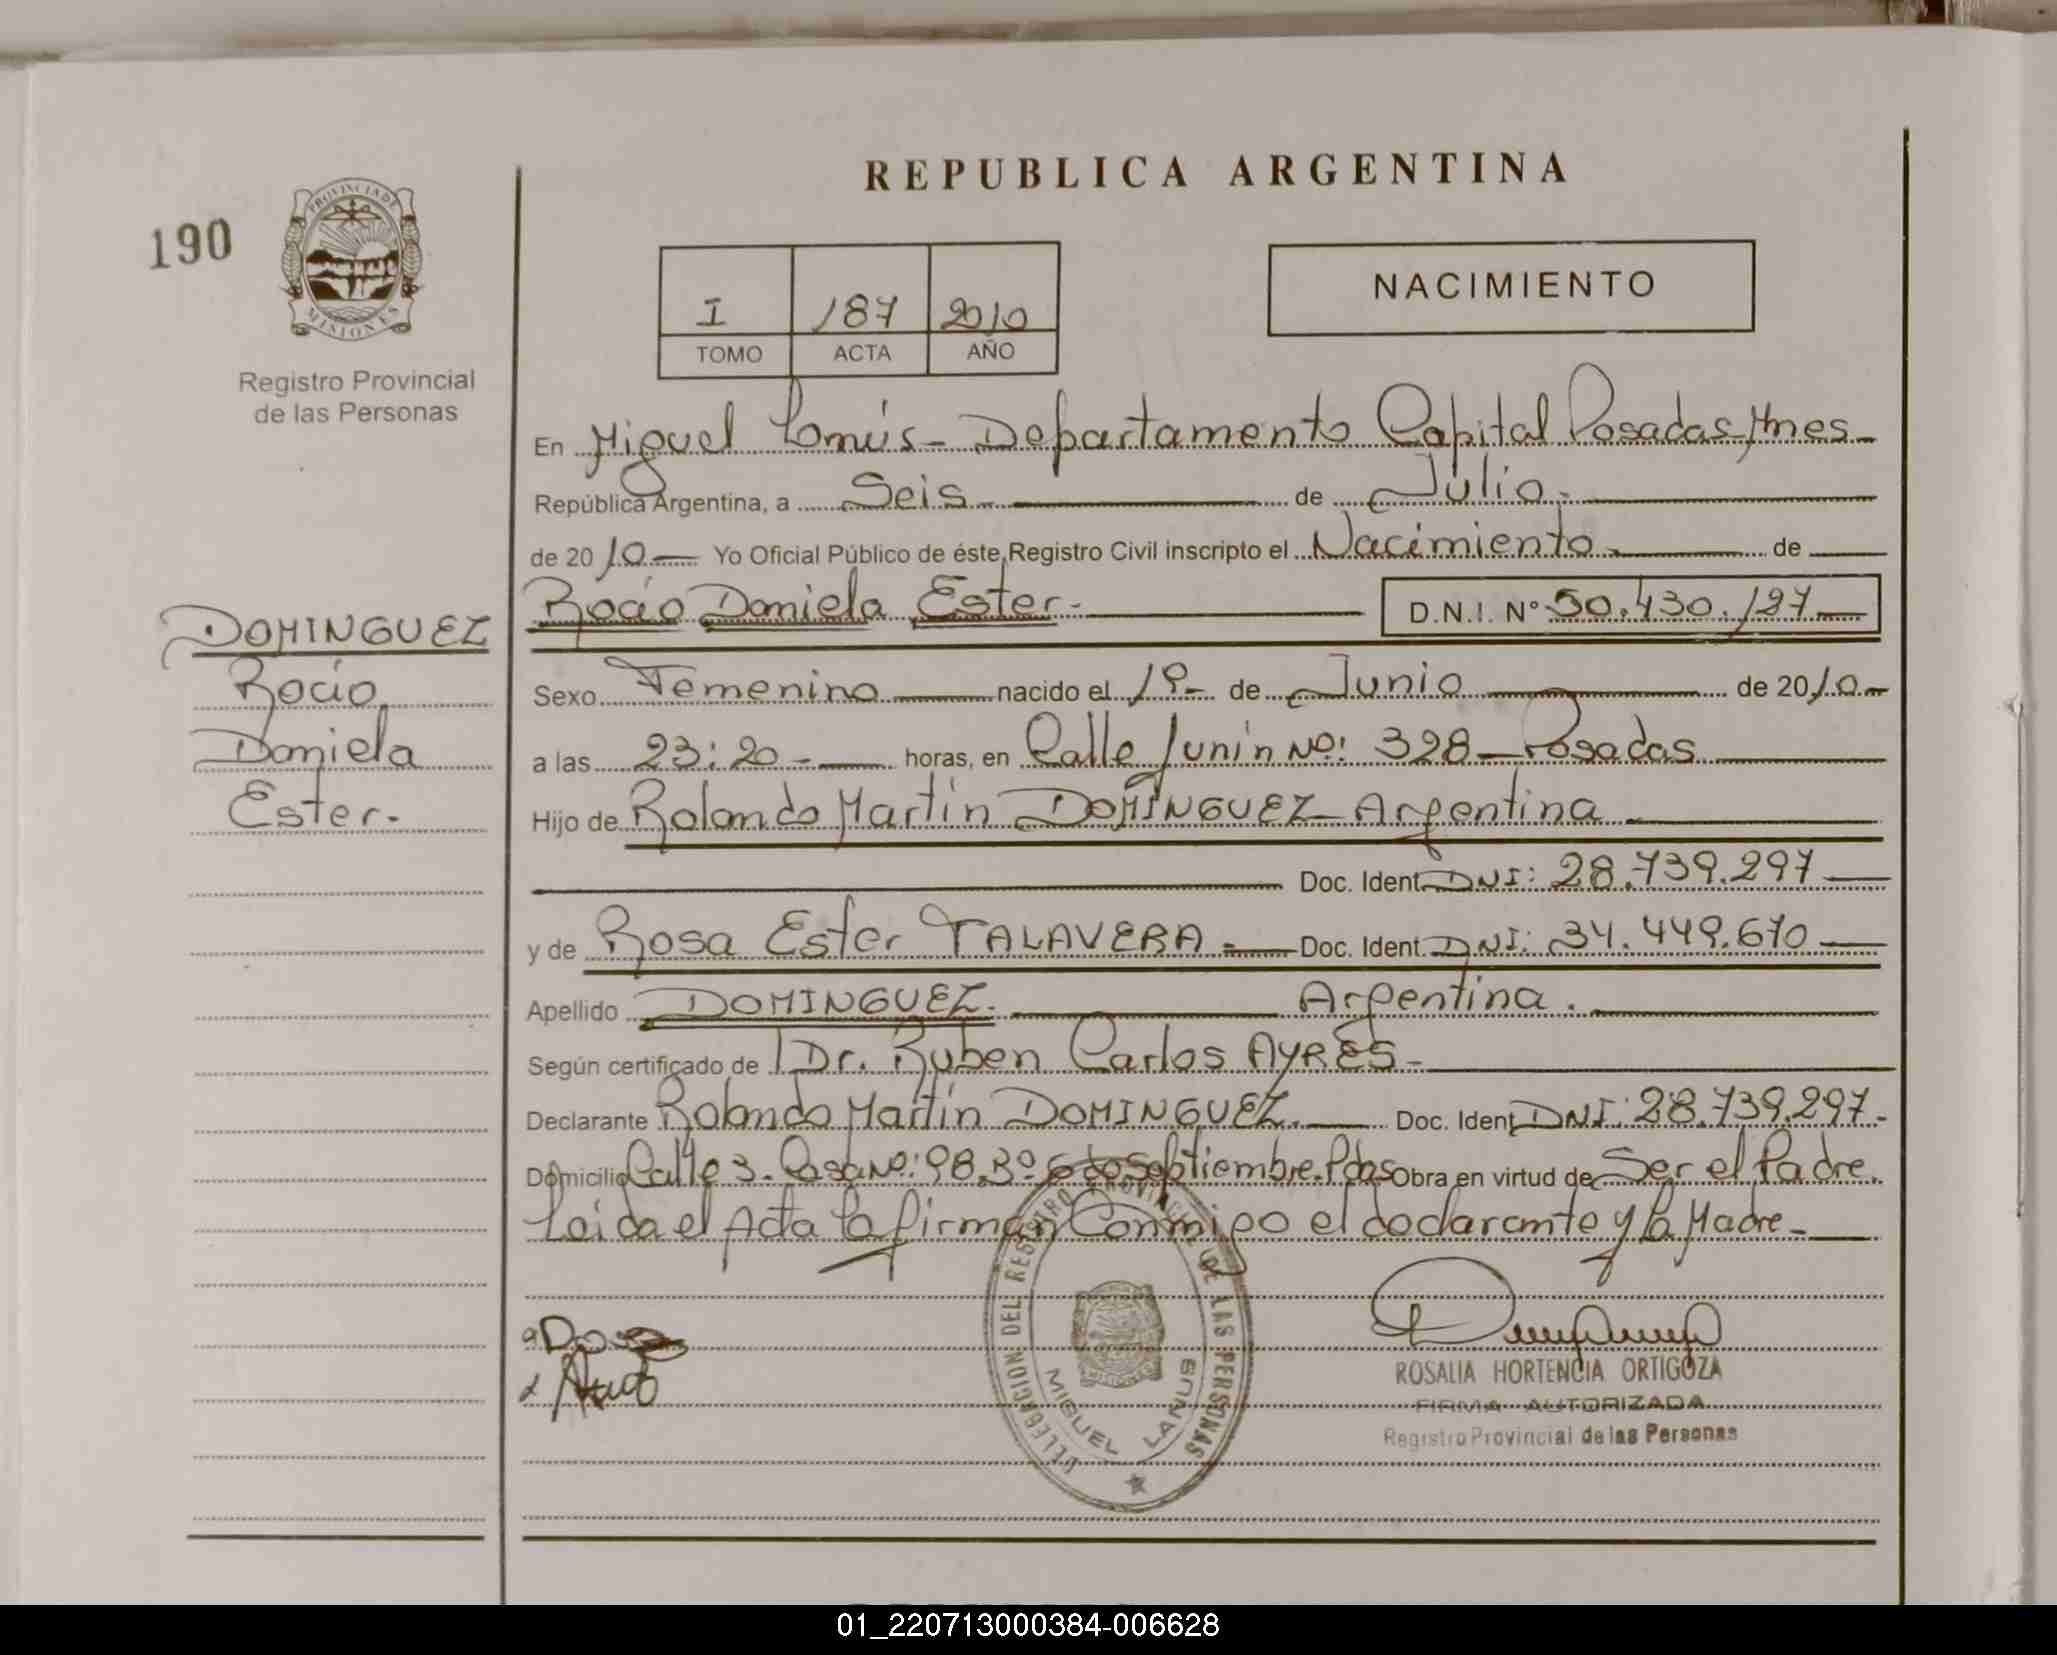 REPUBLICA ARGENTINA
190
PROVINCIA DE
MISIONES
Registro Provincial
de las Personas
I 187 2010
TOMO ACTA AÑO
NACIMIENTO
En Miguel Lanús - Departamento Capital Posadas, Mnes
República Argentina, a Seis de Julio.
de 2010 Yo Oficial Público de éste Registro Civil inscripto el Nacimiento de
Rocio Daniela Ester. D.N.I. Nº 50.430.127
DOMINGUEZ
Rocio
Daniela
Ester.
Sexo Femenino nacido el 1º de Junio de 2010
a las 23:20 horas, en Calle Junín Nº: 328 - Posadas
Hijo de Rolando Martín DOMINGUEZ - Argentina
Doc. Ident. DNI: 28.739.297
y de Rosa Ester TALAVERA Doc. Ident. DNI: 34.449.670
Apellido DOMINGUEZ. Argentina.
Según certificado de Dr. Ruben Carlos AYRES -
Declarante Rolando Martín DOMINGUEZ. Doc. Ident. DNI: 28.739.297.
Domicilio Calle 3. Casa Nº: 98. Bº 6 de Septiembre. Pdas Obra en virtud de Ser el Padre.
Leída el Acta la firman Conmigo el declarante y la Madre -
DELEGACION DEL REGISTRO PROVINCIAL DE LAS PERSONAS
MIGUEL LANUS
ROSALIA HORTENCIA ORTIGOZA
FIRMA AUTORIZADA
Registro Provincial de las Personas
01_220713000384-006628